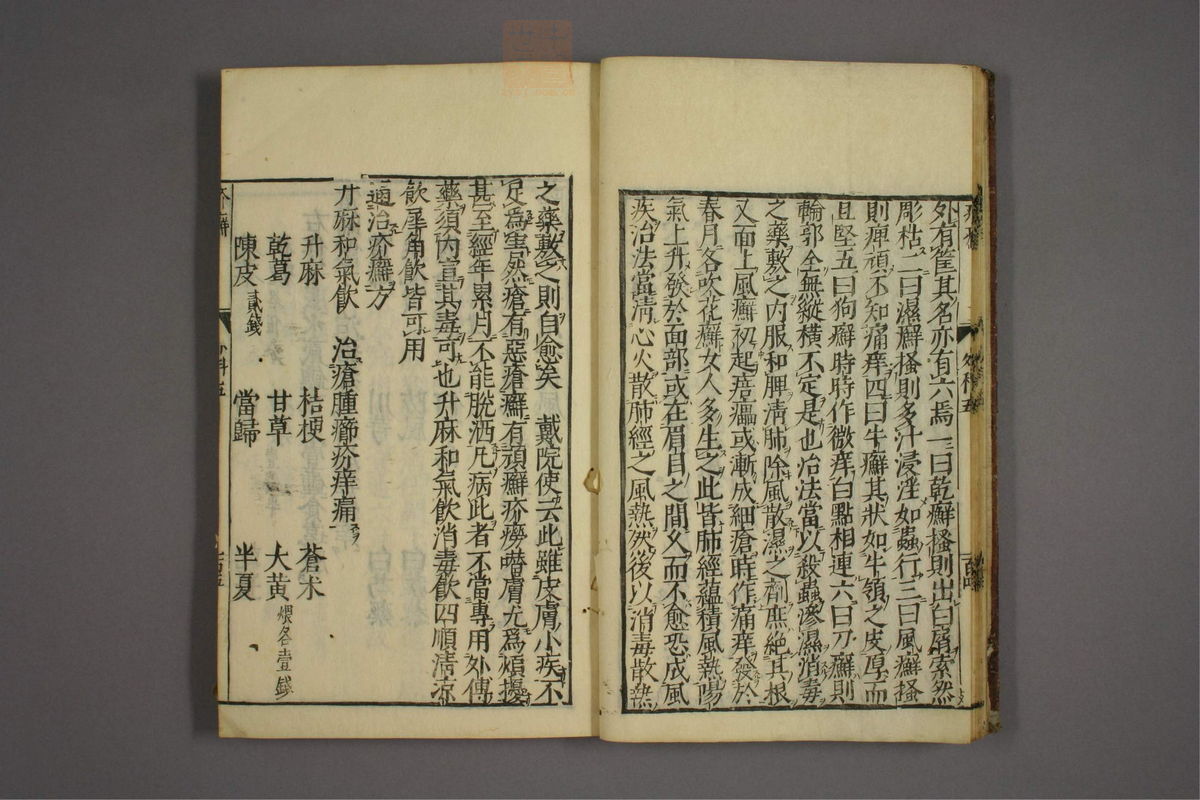 外有筐其名亦有六焉一曰乾癬搔則出白屑索然
彫枯二曰濕癬搔則多汁浸淫如蟲行三曰風癬搔
則痺頑不知痛痒四曰牛癬其狀如牛領之皮厚而
且堅五曰狗癬時時作微痒白點相連六曰刀癬則
輪郭全無縱橫不定是也治法當以殺蟲滲濕消毒
之藥敷之內服和脾清肺除風散濕之劑庶絶其根
又面上風癬初起㾦癗或漸成細瘡時作痛痒發於
春月名吹花癬女人多生之此皆肺經蘊積風熱陽
氣上升發於面部或在眉目之間久而不愈恐成風
疾治法當清心火散肺經之風熱然後以消毒散熱
之藥敷之則自愈矣 戴院使云此雖皮膚小疾不
足為害然瘡有惡瘡癬有頑癬疥癆嚼膚尤為煩擾
甚至經年累月不能脫洒凡病此者不當專用外傳
藥須內宣其毒可也升麻和氣飲消毒飲四順清涼
飲犀角飲皆可用
通治疥癬方
升麻和氣飲 治瘡腫癤疥痒痛
升麻 桔梗 蒼朮
乾葛 甘草 大黃煨各壹錢
陳皮貳錢 當歸 半夏